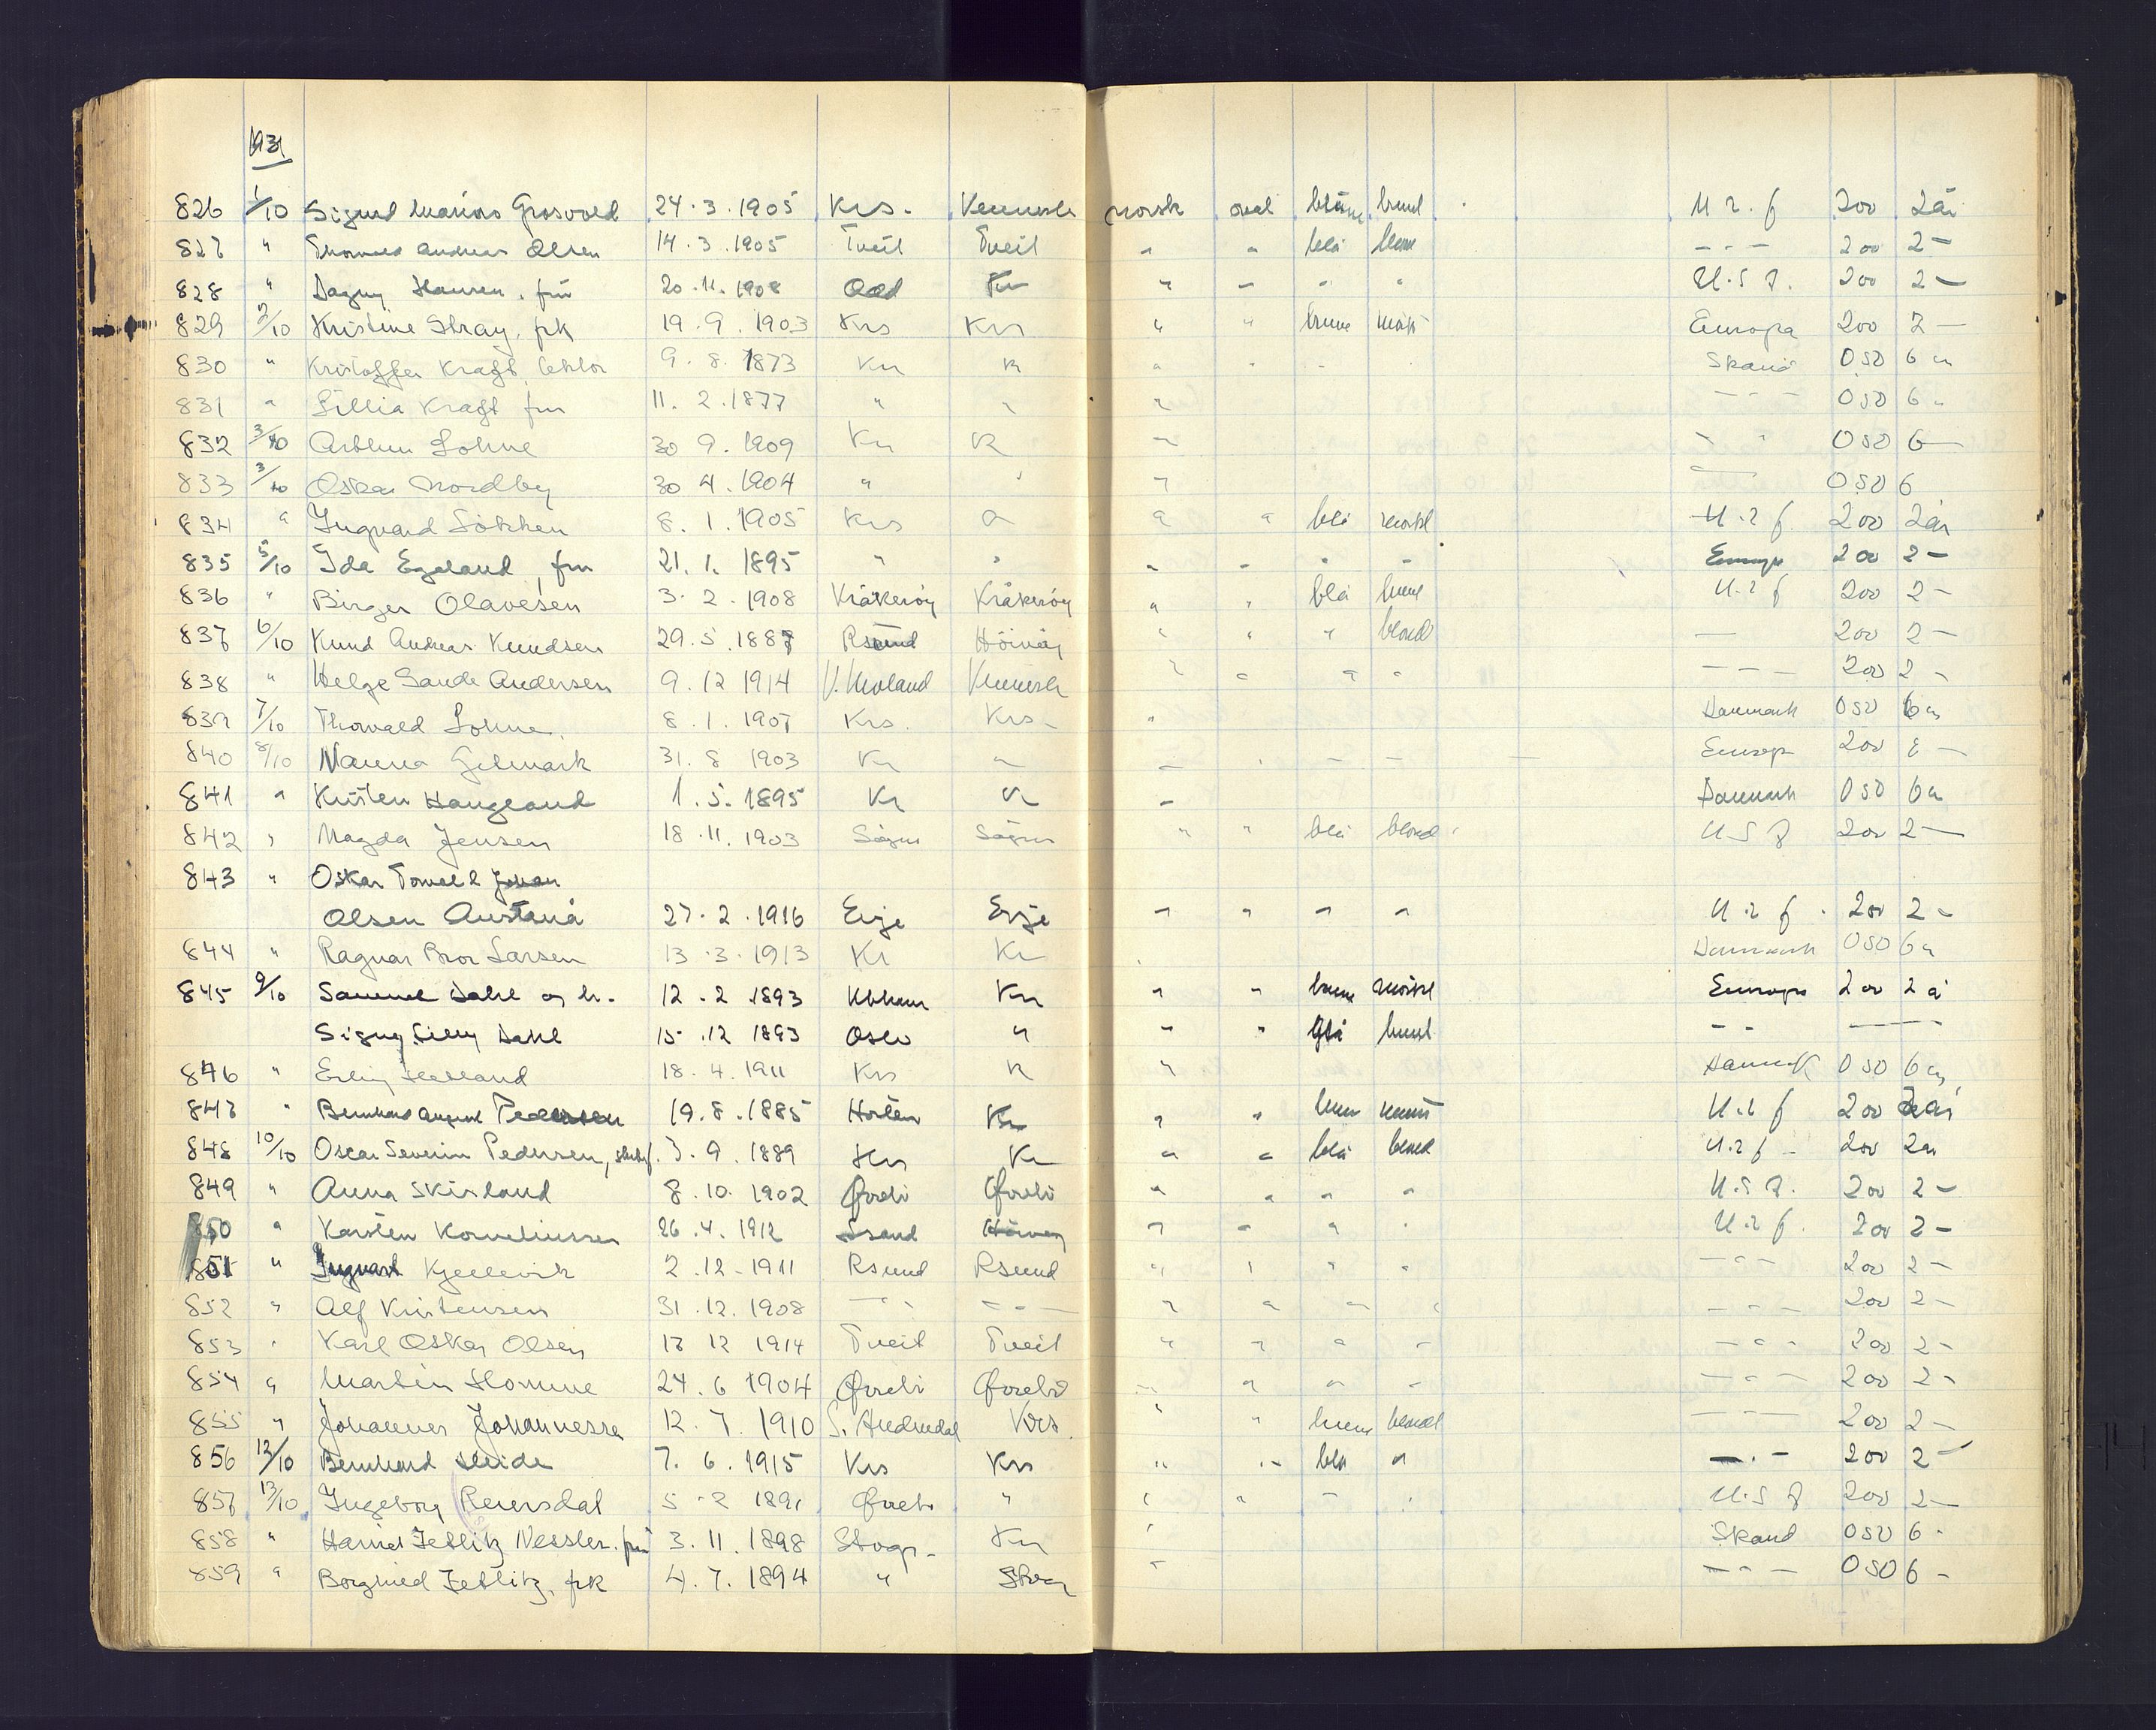 1931
826 1/10 Sigurd Marius Grosvold 24.3.1905 Krs. Vennesla norsk oval blåbrune brunt U.r.f 200 2 år
827 " Thomas Andreas Olsen 14.3.1905 Tveit Tveit " " blå blond - - - 200 2 -
828 " Dagny Hansen, fru 20.11.1908 Kr " - " " U.S.A. 200 2 -
829 2/10 Kristine Stray, frk 19.9.1903 Krs Krs " " brune mørkt Europa 200 2 -
830 " Kristoffer Kraft, lektor 9.8.1873 Kr K " - . Skand 050 6 m
831 " Lillia Kraft fru 11.2.1877 " " " - - - 050 6 "
832 3/10 Arthur Lohne 30 9.1909 Kr K " " " 050 6 -
833 3/10 Oskar Nordby 30 4.1904 " " " - 050 6
834 " Ingvard Løkken 8.1.1905 Krs " " " blå mørkt U.r f. 200 2 år
835 5/10 Ida Egeland, fru 21.1.1895 " " " - " - Europa 200 2 -
836 " Birger Olavesen 3.2.1908 Kråkerøy Kråkerøy " " blå brunt U.r f 200 2 -
837 6/10 Knud Andreas Knudsen 29.5.1887 Rsund Höivåg " " " blond - 200 2 -
838 " Helge Sande Andersen 9.12 1914 V. Moland Vennesla " " " " - - - 200 2 -
839 7/10 Thorvald Lohne. 8.1.1907 Krs. Krs - " Danmark 050 6 m
840 8/10 Nanna Gilmark 31.8 1903 Kr " - . - - - Europa 200 2 -
841 " Kristen Haugland 1.5.1895 Kr K - Danmark 050 6 m
842 " Magda Jensen 18.11.1903 Søgne Søgne " " blå blond U S A 200 2 -
843 " Oskar Tomell Johan
Olsen Austanå 27.2.1916 Evje Evje " " " " U.r f. 200 2 -
844 " Ragnar Bror Larsen 13.3.1913 Kr Kr . Danmark 050 6 m
845 9/10 Samuel Dahl og h. 12.2.1893 Kbhavn Kr " " brune mørkt Europa 200 2 å
Signy Lilly Dahl 15.12 1893 Oslo " " " blå brunt - - ----
846 " Erling Helland 18.4.1911 Krs K " Danmark 050 6 m
847 " Bernhard August Pedersen 19.8.1885 Horten Kr " " brun U.r f 200 2 år
848 10/10 Oscar Severin Pedersen, 3.9.1889 Krs Kr " " blå blond U.r f - 200 2 år
849 " Anna Skisland 8.10.1902 Øvrebø Øvrebø " " " " U.S.A. 200 2 -
850 " Karsten Korneliussen 26.4.1912 Höivåg " " " " U.r f. 200 2 -
851 " Ingvart Kjellevik 2.12.1911 Rsund Rsund " " " " - " - 200 2 -
852 " Alf Kristensen 31.12.1908 - " - - - - " " - " - - - 200 2 -
853 " Karl Oskar Olsen 17 12 1914 Tveit Tveit " " " - - " " 200 2 -
854 " Martin Homme 24.6 1904 Øvrebø Øvrebø " " " - - - - 200 2 -
855 " Johannes Johannessen 12.7.1910 S. Audnedal Krs. " " brune blond - - - 200 2 -
856 12/10 Bernhard Heide 7.6.1915 Krs Krs " " blå " - . - 200 2 -
857 13/10 Ingeborg Reiersdal 5.2 1891 Øvrebø " " " - . U.S A 200 2 -
858 " Harriet Jetlitz Nessler. fru 3.11.1898 Stvgr. Kr " Skand 050 6 -
859 " Borghild Jetlitz, frk 4.7.1894 " Stvgr " - " - 050 6 -